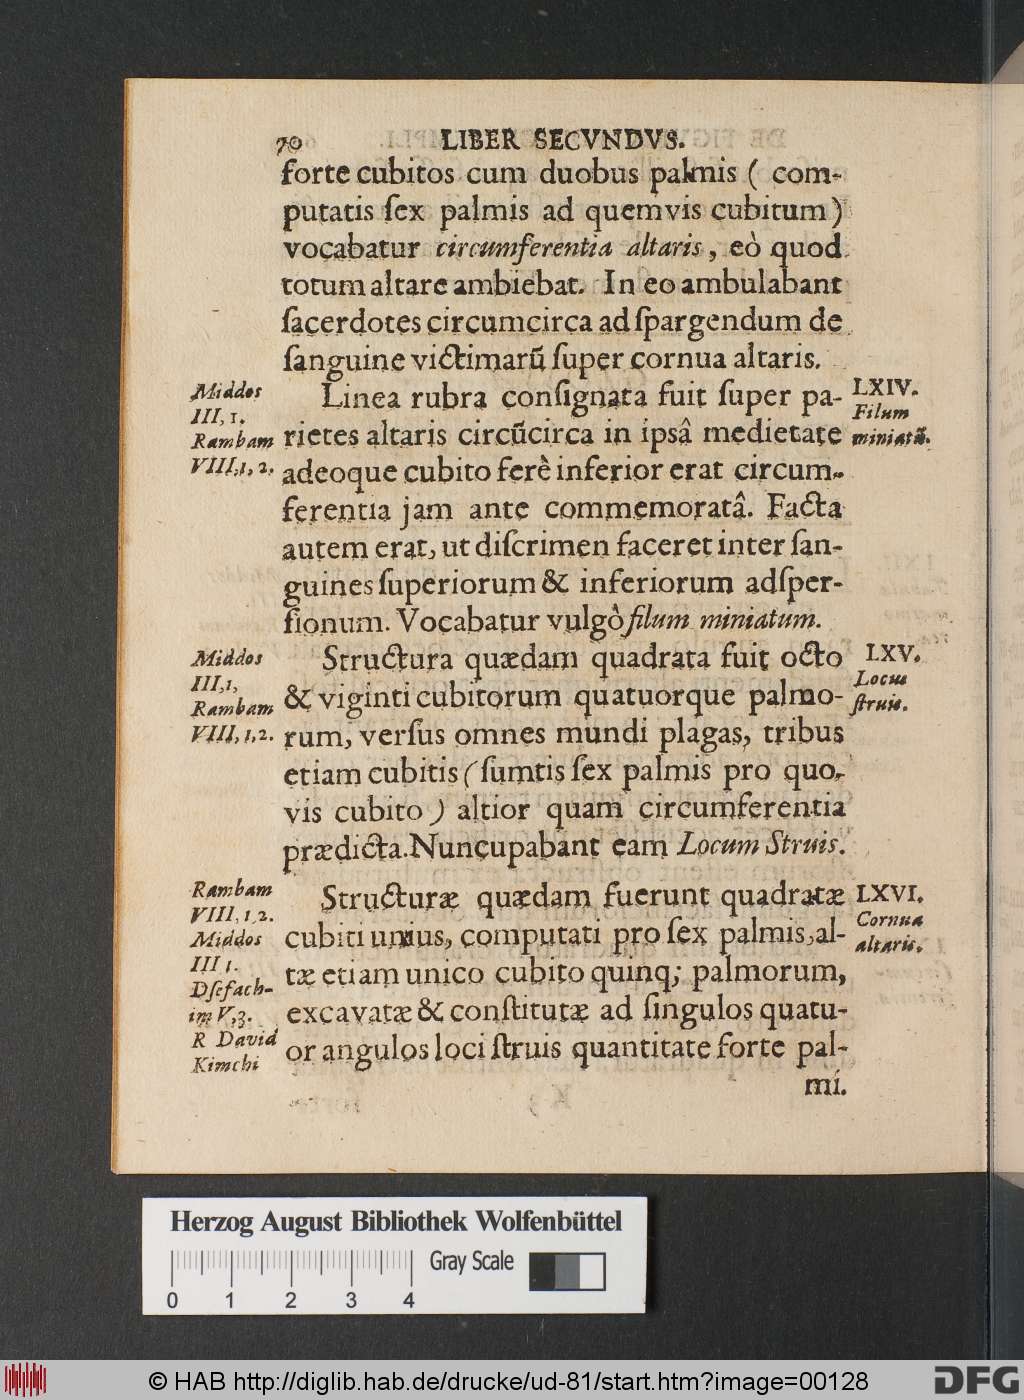 70 LIBER SECVNDVS.
forte cubitos cum duobus palmis ( com-
putatis ſex palmis ad quemvis cubitum)
vocabatur circumferentia altaris, eò quod
totum altare ambiebat. In eo ambulabant
ſacerdotes circumcirca ad ſpargendum de
ſanguine victimarū ſuper cornua altaris.
Middos
III, 1.
Rambam
VIII,1,2.
Linea rubra conſignata fuit ſuper pa-
rietes altaris circūcirca in ipsâ medietate
adeoque cubito ferè inferior erat circum-
ferentia jam ante commemoratâ. Facta
autem erat, ut diſcrimen faceret inter ſan-
guines ſuperiorum & inferiorum adſper-
ſionum. Vocabatur vulgò filum miniatum.
LXIV.
Filum
miniatū.
Middos
III,1,
Rambam
VIII,1,2.
Structura quædam quadrata fuit octo
& viginti cubitorum quatuorque palmo-
rum, verſus omnes mundi plagas, tribus
etiam cubitis (ſumtis ſex palmis pro quo-
vis cubito) altior quam circumferentia
prædicta. Nuncupabant eam Locum Struis.
LXV.
Locus
ſtruis.
Rambam
VIII,1,2.
Middos
III 1.
Dſefach-
im V,3.
R David
Kimchi
Structuræ quædam fuerunt quadratæ
cubiti unius, computati pro ſex palmis, al-
tæ etiam unico cubito quinq; palmorum,
excavatæ & conſtitutæ ad ſingulos quatu-
or angulos loci ſtruis quantitate forte pal-
mi.
LXVI.
Cornua
altaris.
Herzog August Bibliothek Wolfenbüttel
Gray Scale
0 1 2 3 4
© HAB http://diglib.hab.de/drucke/ud-81/start.htm?image=00128
DFG